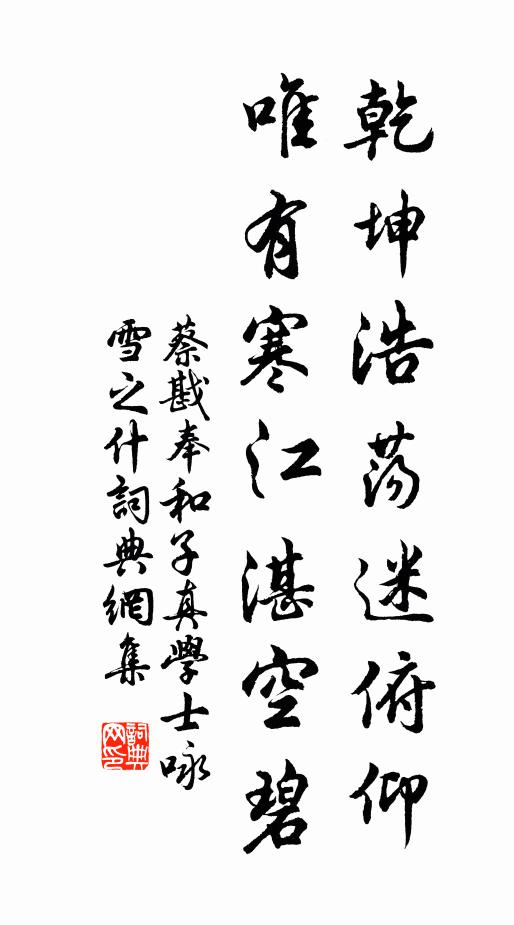 乾坤浩荡迷俯仰
唯有寒江湛空碧
蔡戡奉和子真學士咏
雪之什詞典網集
詞典
网印